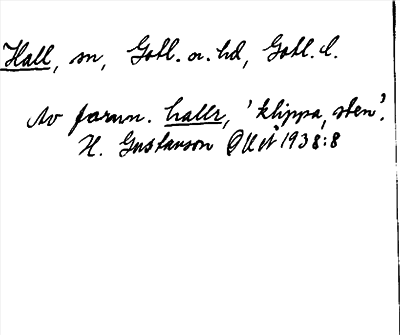 Hall, sn, Gotl. n. hd, Gotl. l.
Av fornn. hallr, 'klippa, sten'.
H. Gustavson 1938:8